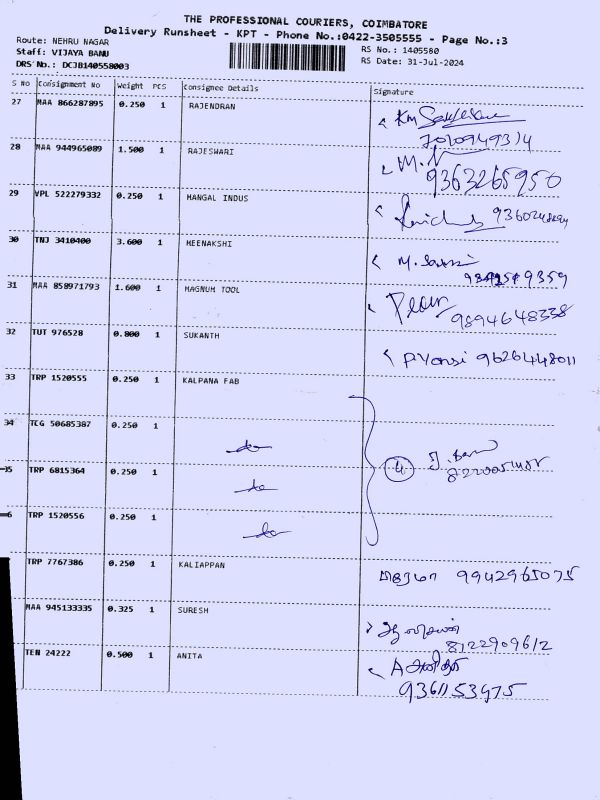 THE PROFESSIONAL COURIERS, COIMBATORE
Delivery Runsheet - KPT - Phone No.:0422-3505555 - Page No.:3
Route: NEHRU NAGAR
Staff: VIJAYA BANU
DRS No.: DCJB140558003
RS No.: 1405580
RS Date: 31-Jul-2024
S No Consignment No Weight PCS Consignee Details Signature
27 MAA 866287895 0.250 1 RAJENDRAN
28 MAA 944965089 1.500 1 RAJESWARI
9363265950
29 VPL 522279332 0.250 1 MANGAL INDUS
30 TNJ 3410400 3.600 1 MEENAKSHI
31 MAA 858971793 1.600 1 MAGNUM TOOL
9894648338
32 TUT 976528 0.800 1 SUKANTH 9626448011
33 TRP 1520555 0.250 1 KALPANA FAB
34 TCG 50685387 0.250 1
35 TRP 6815364 0.250 1 4
6 TRP 1520556 0.250 1
TRP 7767386 0.250 1 KALIAPPAN 9942965075
MAA 945133335 0.325 1 SURESH
8122909612
TEN 24222 0.500 1 ANITA
9361153975